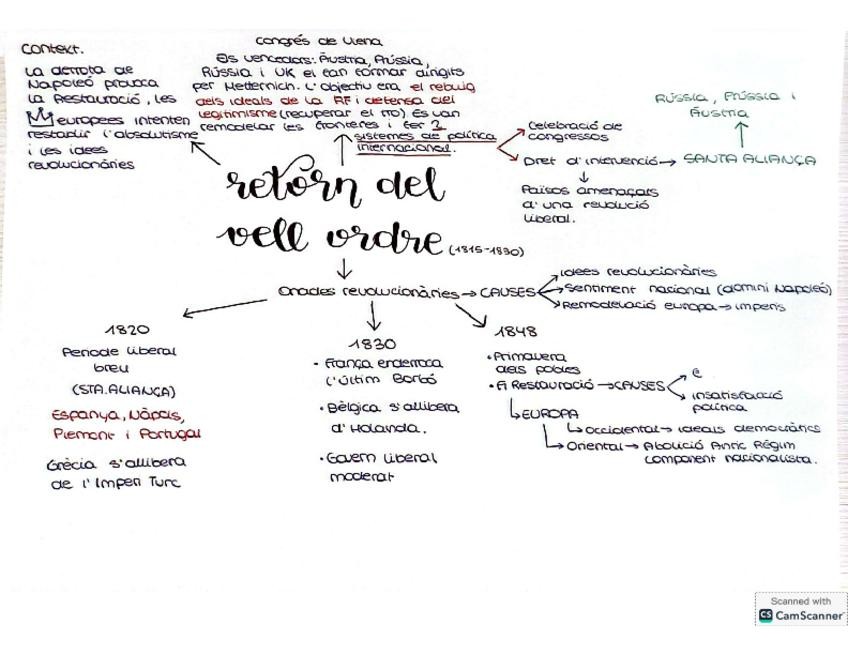 Context.
La derrota de
Napoleó provoca
la Restauració, les
europees intenten
restaurar l'absolutisme
i les idees
revolucionàries
Congrés de Viena
Els vencedors: Àustria, Prússia,
Rússia i UK el van formar dirigits
per Metternich. L'objectiu era el rebuig
dels ideals de la RF i defensa del
legitimisme (recuperar el tro) Es van
remodelar les fronteres i fer 2
sistemes de política
internacional.
Celebració de
congressos
Dret d'intervenció → SANTA ALIANÇA
Països amenaçats
d'una revolució
liberal.
Rússia, Prússia i
Àustria
retorn del
vell ordre (1815-1830)
Onades revolucionàries → CAUSES
Idees revolucionàries
Sentiment nacional (domini Napoleó)
Remodelació europa → imperis
1820
Període liberal
breu
(STA.ALIANÇA)
Espanya, Nàpols,
Piemont i Portugal
Grècia s'allibera
de l'Imperi Turc
1830
• França enderroca
l'últim Borbó
• Bèlgica s'allibera
d'Holanda.
• Govern liberal
moderat
1848
• Primavera
dels pobles
• Fi Restauració → CAUSES
€
insatisfacció
política
EUROPA
Occidental → ideals democràtics
Oriental → Abolició Antic Règim
component nacionalista.
Scanned with
CS CamScanner